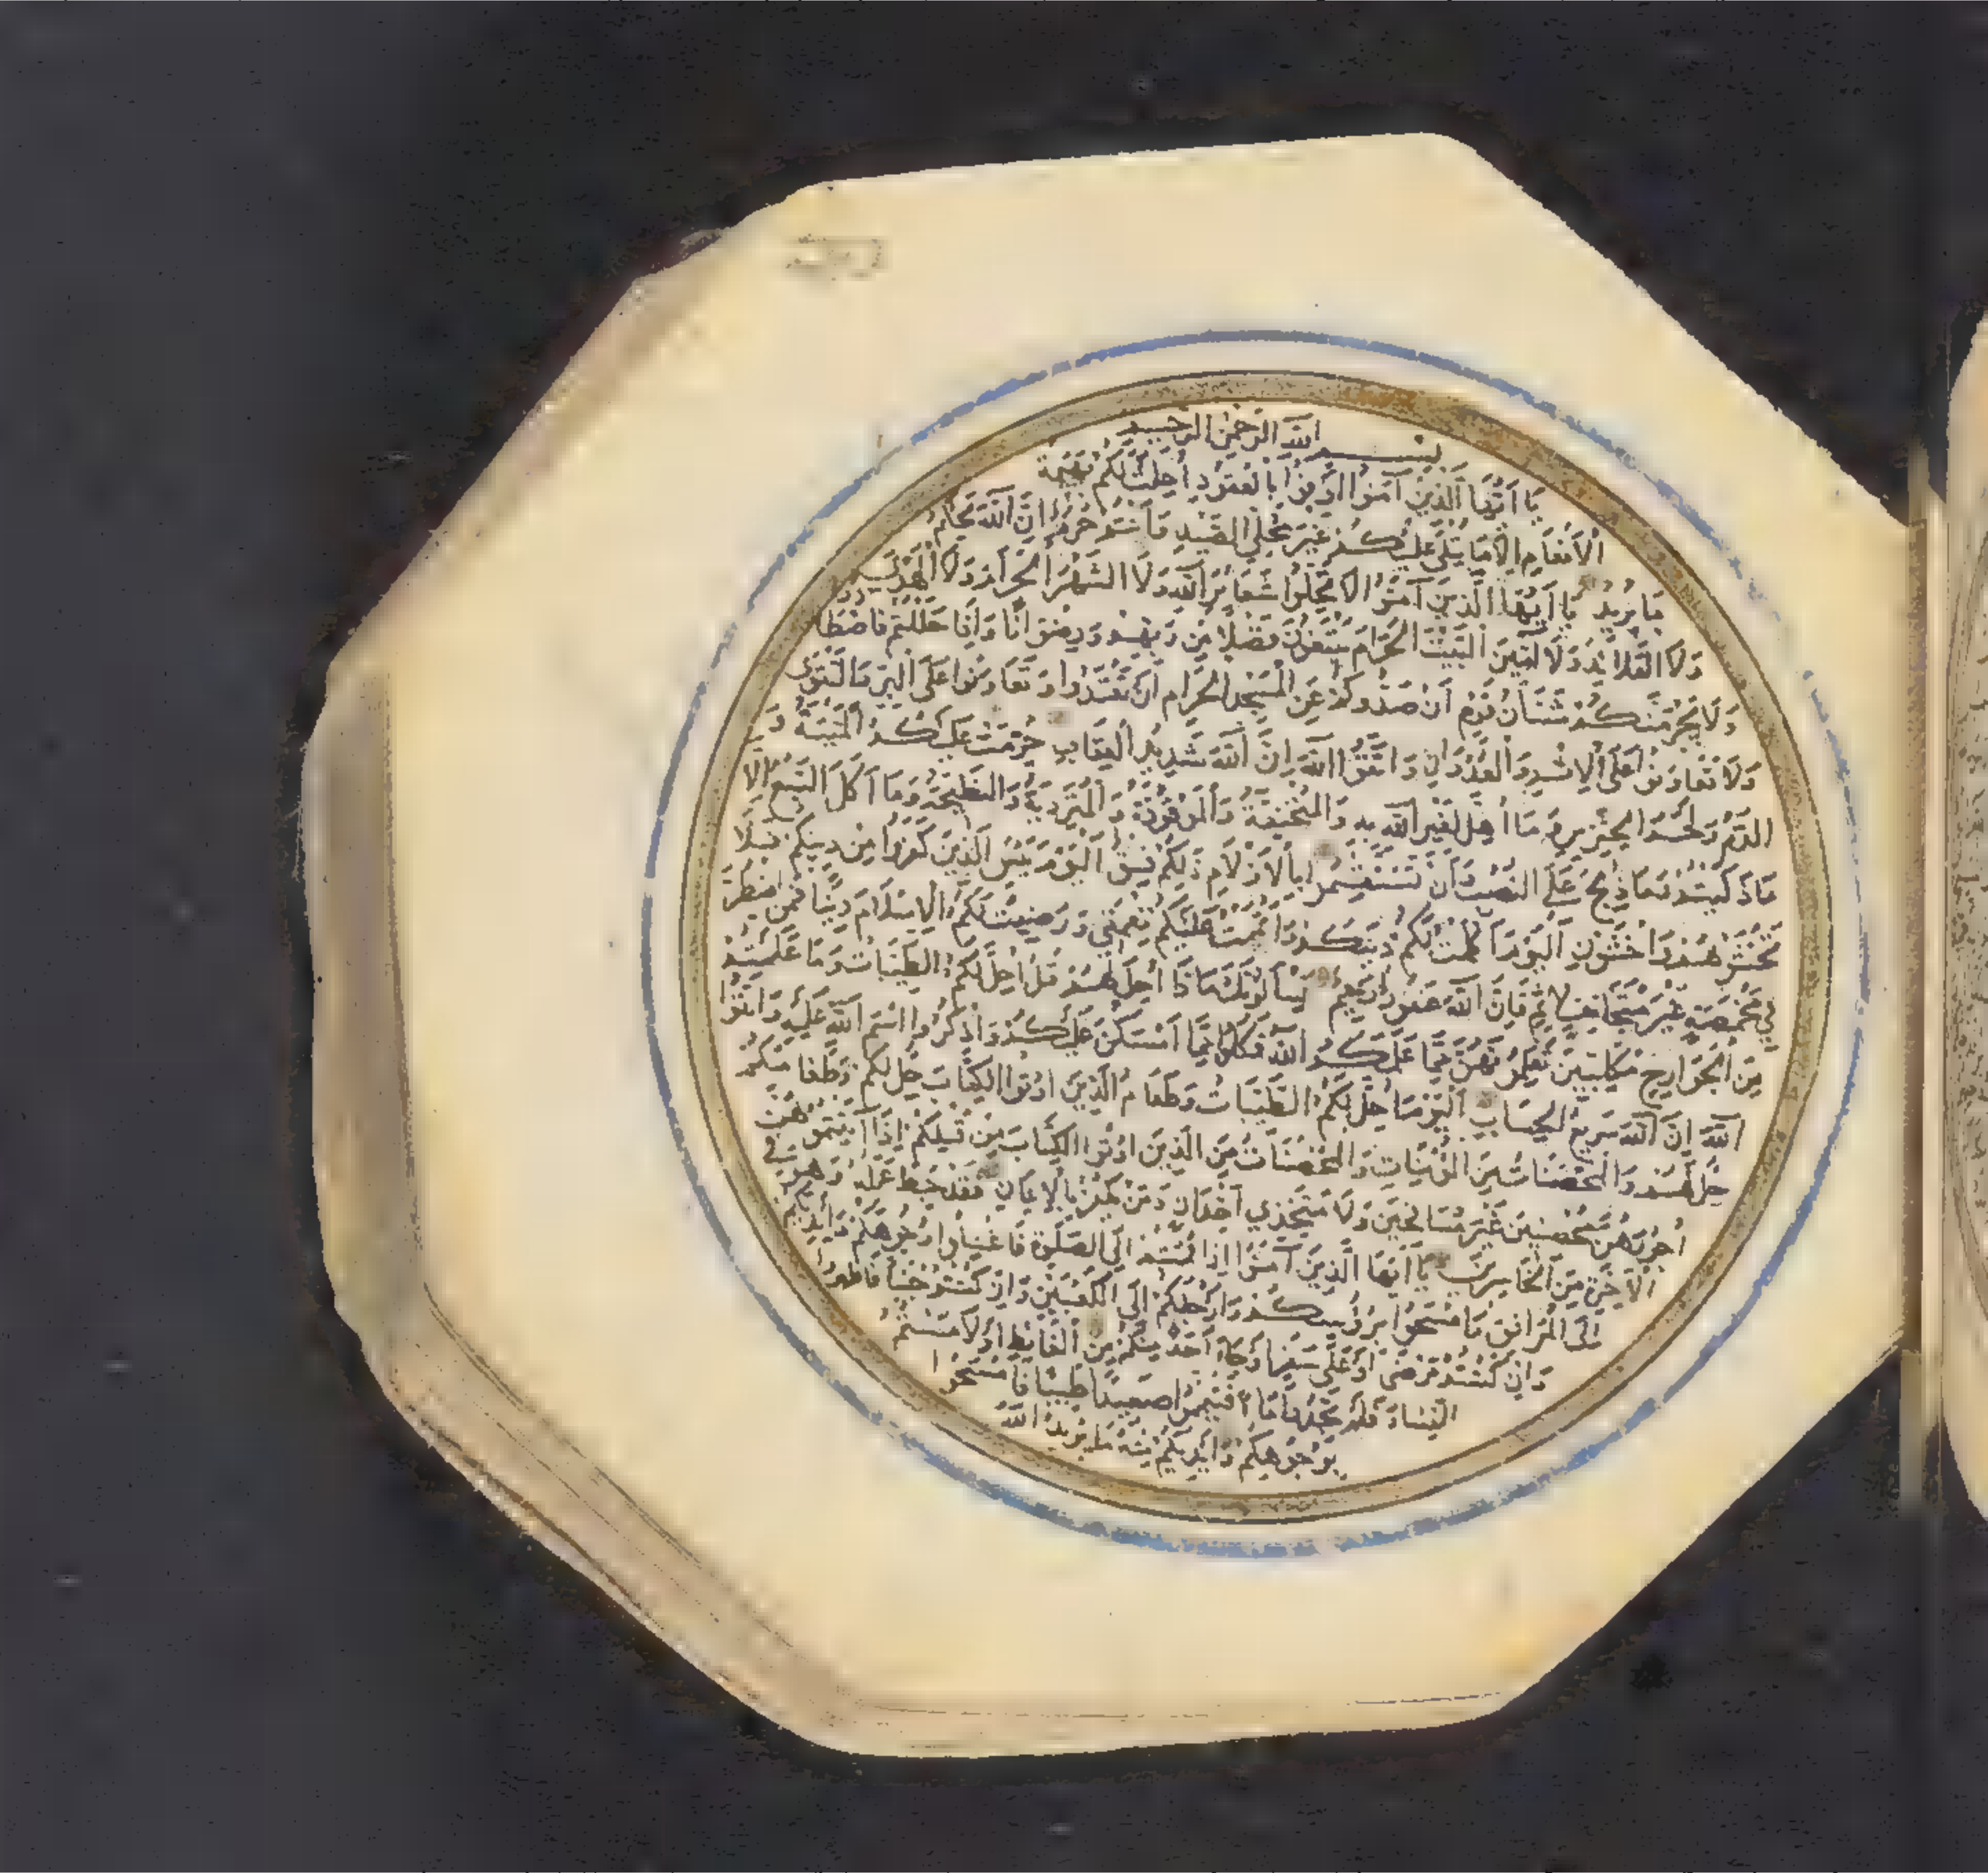 بسم الله الرحمن الرحيم
يا ايها الذين آمنوا اوفوا بالعقود احلت لكم بهيمة
الانعام الا ما يتلى عليكم غير محلي الصيد وانتم حرم ان الله يحكم
ما يريد يا ايها الذين آمنوا لا تحلوا شعائر الله ولا الشهر الحرام ولا الهدي
ولا القلائد ولا آمين البيت الحرام يبتغون فضلا من ربهم ورضوانا واذا حللتم فاصطا
ولا يجرمنكم شنآن قوم ان صدوكم عن المسجد الحرام ان تعتدوا وتعاونوا على البر والتقوى
ولا تعاونوا على الاثم والعدوان واتقوا الله ان الله شديد العقاب حرمت عليكم الميتة و
الدم ولحم الخنزير وما اهل لغير الله به والمنخنقة والموقوذة والمتردية والنطيحة وما اكل السبع الا
ما ذكيتم وما ذبح على النصب وان تستقسموا بالازلام ذلكم فسق اليوم يئس الذين كفروا من دينكم فلا
تخشوهم واخشون اليوم اكملت لكم دينكم واتممت عليكم نعمتي ورضيت لكم الاسلام دينا فمن اضطر
في مخمصة غير متجانف لاثم فان الله غفور رحيم يسألونك ماذا احل لهم قل احل لكم الطيبات وما علمتم
من الجوارح مكلبين تعلمونهن مما علمكم الله فكلوا مما امسكن عليكم واذكروا اسم الله عليه واتقوا
الله ان الله سريع الحساب اليوم احل لكم الطيبات وطعام الذين اوتوا الكتاب حل لكم وطعامكم
حل لهم والمحصنات من المؤمنات والمحصنات من الذين اوتوا الكتاب من قبلكم اذا آتيتموهن
اجورهن محصنين غير مسافحين ولا متخذي اخدان ومن يكفر بالايمان فقد حبط عمله وهو في
الآخرة من الخاسرين يا ايها الذين آمنوا اذا قمتم الى الصلوة فاغسلوا وجوهكم وايديكم
الى المرافق وامسحوا برؤسكم وارجلكم الى الكعبين وان كنتم جنبا فاطهروا
وان كنتم مرضى او على سفر او جاء احد منكم من الغائط او لامستم
النساء فلم تجدوا ماء فتيمموا صعيدا طيبا فامسحوا
بوجوهكم وايديكم منه ما يريد الله